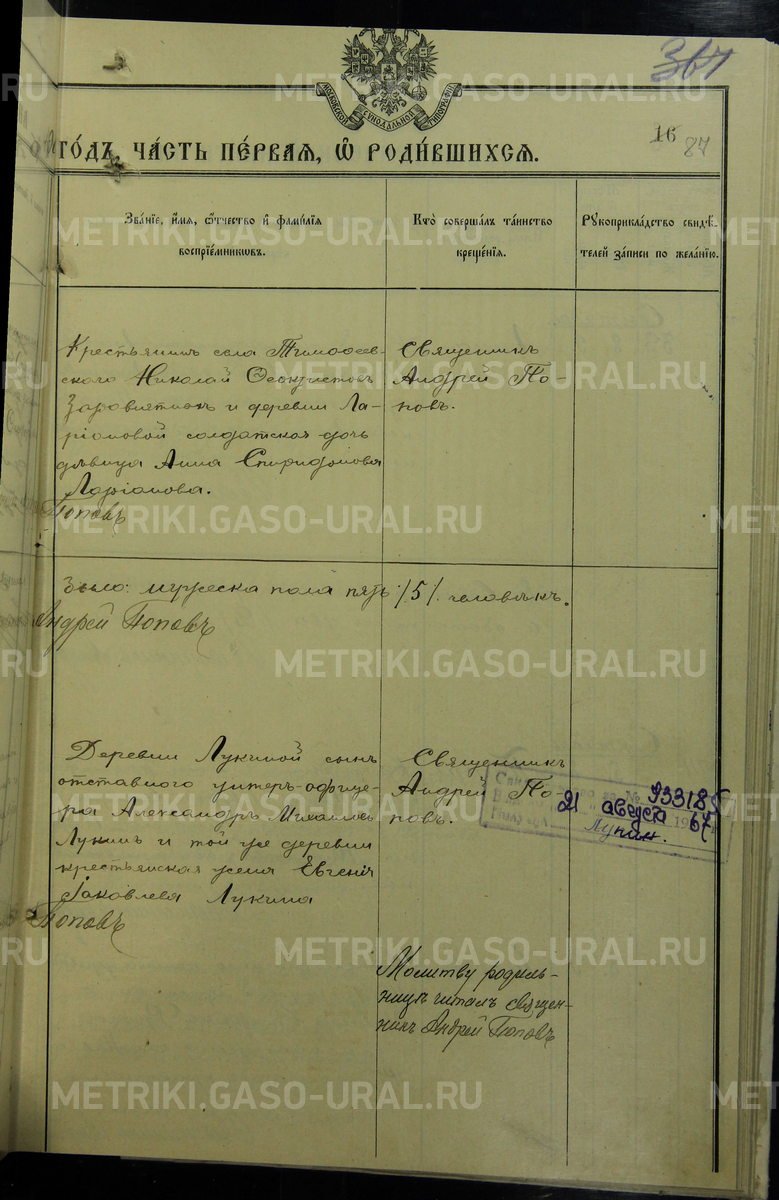 367
МОСКОВСКОЙ СѴНОДАЛЬНОЙ ТИПОГРАФІИ
16
87
годъ, часть первая, ѿ родившихся.
Званіе, имя, отчество и фамилія воспріемниковъ.
Кто совершалъ таинство крещенія.
Рукоприкладство свидѣтелей записи по желанію.
Крестьянинъ села Тимоѳеев-
скаго Николай Ѳеоктистовъ
и деревни Ла-
ріоновой солдатская дочь
дѣвица Анна Спиридонова
Ларіонова.
Поповъ
Священникъ
Андрей По-
повъ.
мужеска пола пять /5/ человѣкъ.
Андрей Поповъ
Деревни Лукиной сынъ
отставного унтеръ-офице-
ра Александръ Михаиловъ
Лукинъ и той же деревни
крестьянская жена Евгенія
Іаковлева Лукина
Поповъ
Священникъ
Андрей По-
повъ.
933185
21 августа 1967
Молитву родиль-
ницѣ читалъ священ-
никъ Андрей Поповъ
METRIKI.GASO-URAL.RU